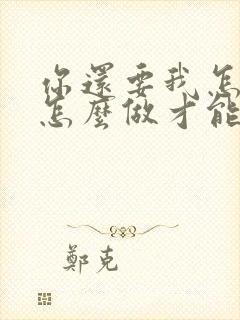 你還要我怎
怎麼做才能
鄭克